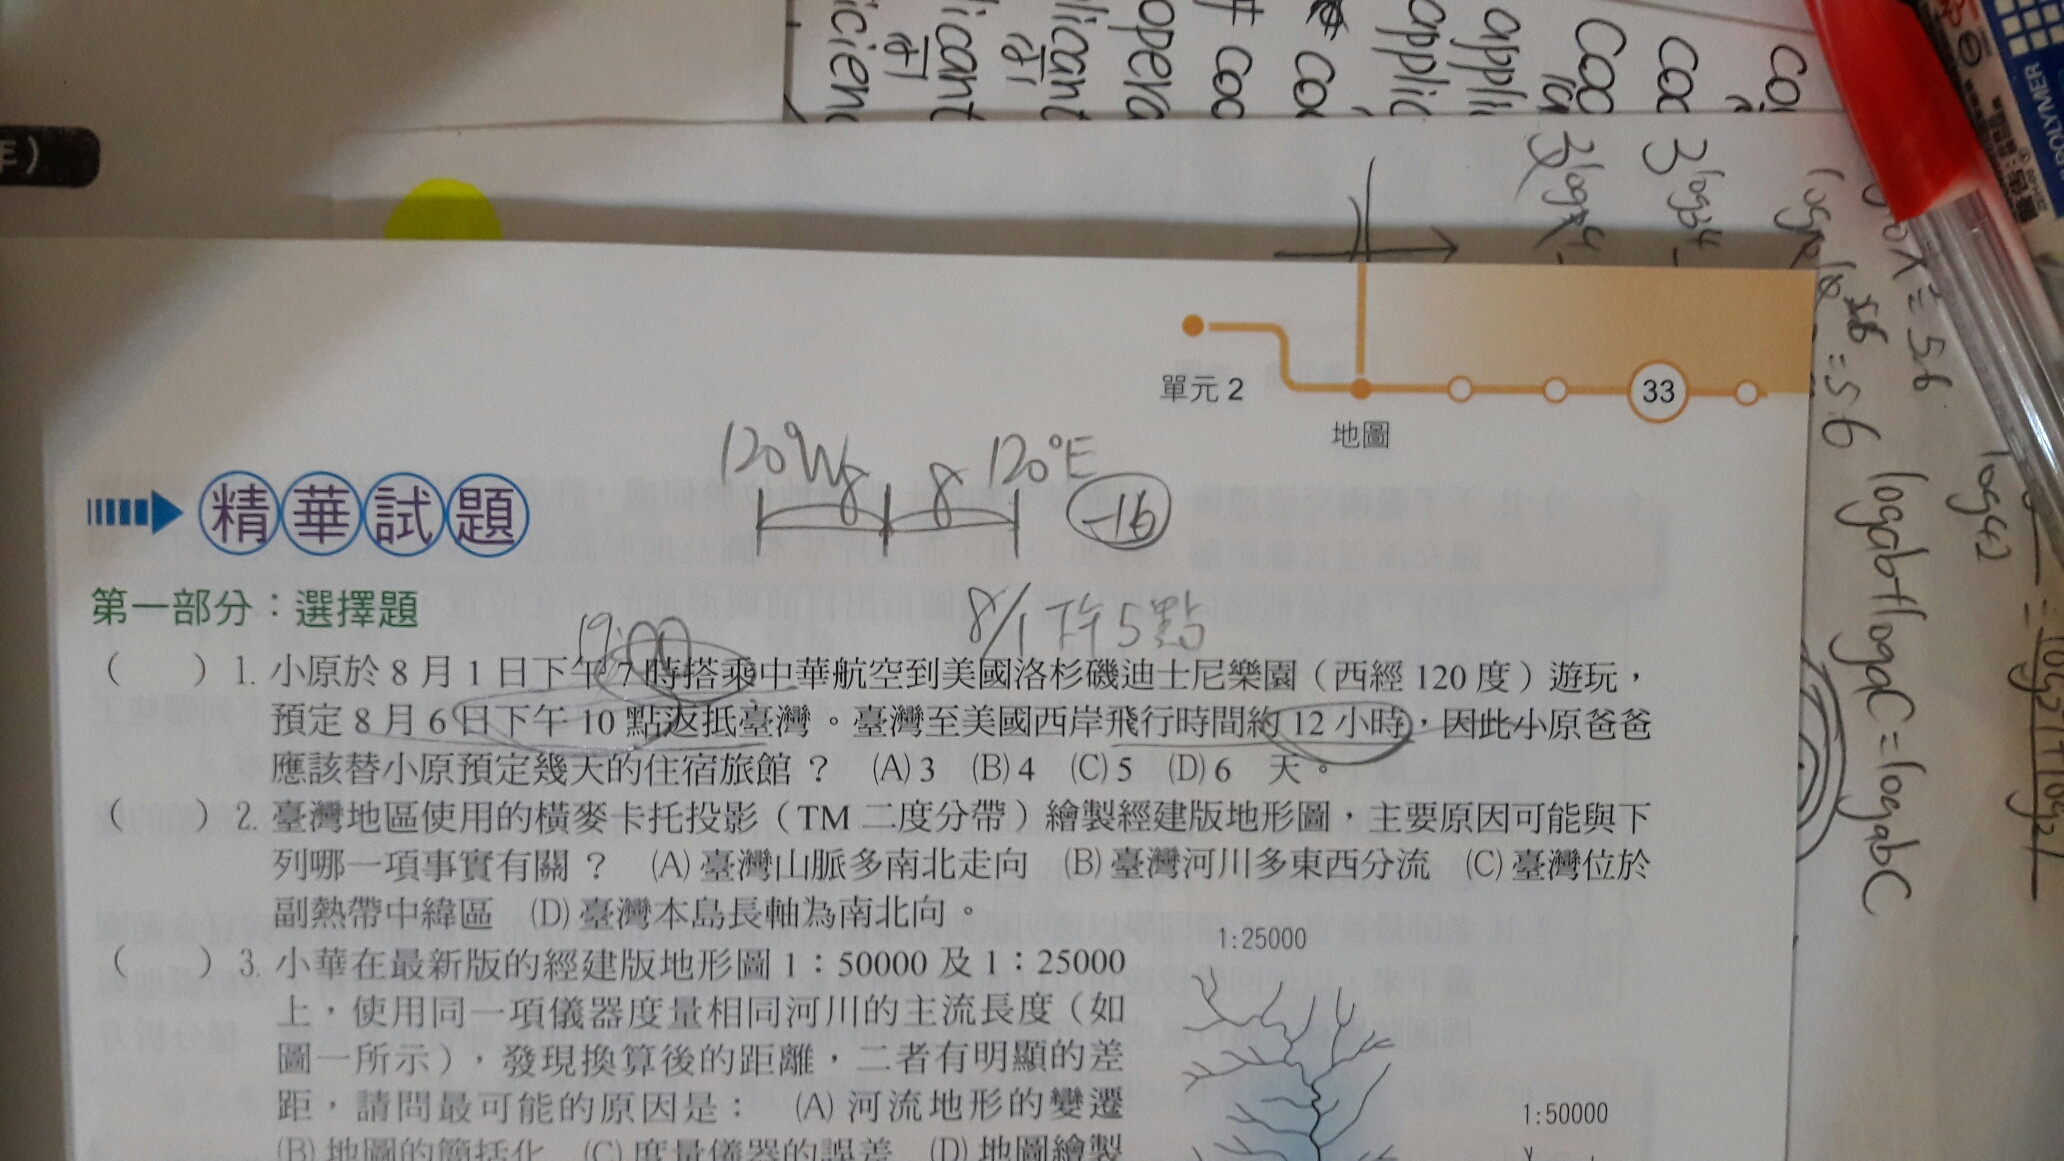 applicant
opera
coo
cox
applic
appli
Coo
3log34
單元 2
33
地圖
120°W 8 8 120°E
-16
精華試題
第一部分：選擇題
19:00
8/1 下午5點
( ) 1. 小原於 8 月 1 日下午 7 時搭乘中華航空到美國洛杉磯迪士尼樂園（西經 120 度）遊玩，
預定 8 月 6 日下午 10 點返抵臺灣。臺灣至美國西岸飛行時間約 12 小時，因此小原爸爸
應該替小原預定幾天的住宿旅館？ (A) 3 (B) 4 (C) 5 (D) 6 天。
( ) 2. 臺灣地區使用的橫麥卡托投影（TM 二度分帶）繪製經建版地形圖，主要原因可能與下
列哪一項事實有關？ (A) 臺灣山脈多南北走向 (B) 臺灣河川多東西分流 (C) 臺灣位於
副熱帶中緯區 (D) 臺灣本島長軸為南北向。
( ) 3. 小華在最新版的經建版地形圖 1：50000 及 1：25000
上，使用同一項儀器度量相同河川的主流長度（如
圖一所示），發現換算後的距離，二者有明顯的差
距，請問最可能的原因是： (A) 河流地形的變遷
(B) 地圖的簡括化 (C) 度量儀器的誤差 (D) 地圖繪製
1:25000
1:50000
logab+logaC=logabC